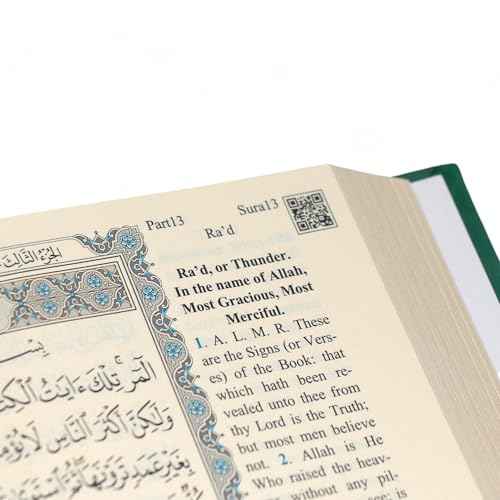 Part13
Sura13
Ra'd
Ra'd, or Thunder.
In the name of Allah,
Most Gracious, Most
Merciful.
1. A. L. M. R. These
are the Signs (or Vers-
es) of the Book: that
which hath been re-
vealed unto thee from
thy Lord is the Truth;
but most men believe
not. 2. Allah is He
Who raised the heav-
without any pil-
الجزء الثالث
بِسْـ
الٓمٓر تِلْكَ ءَايَٰتُ
وَلَٰكِنَّ أَكْثَرَ ٱلنَّاسِ لَا
بِغَيْرِ عَمَدٍ تَرَوْنَهَا